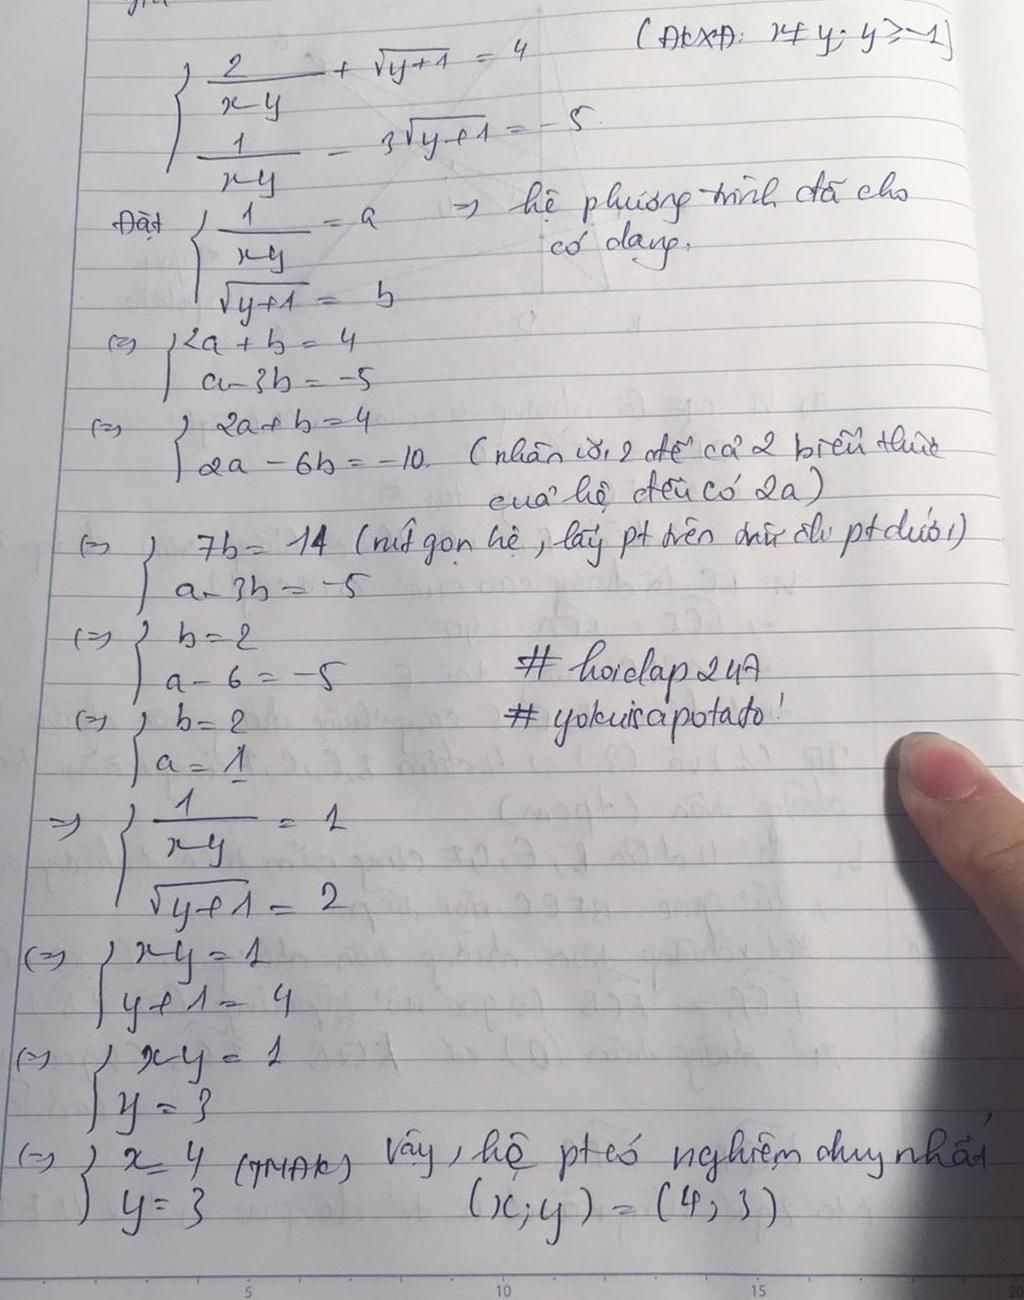 (ĐKXĐ: x ≠ y; y ≥ -1)
{ 2/(x-y) + √(y+1) = 4
1/(x-y) - 3√(y+1) = -5
Đặt { 1/(x-y) = a => hệ phương trình đã cho
√(y+1) = b có dạng.
(=) { 2a + b = 4
a - 3b = -5
(=) { 2a + b = 4
2a - 6b = -10. (nhân với 2 để cả 2 biểu thức
của hệ đều có 2a)
(=) { 7b = 14 (rút gọn hệ, lấy pt trên trừ đi pt dưới)
a - 3b = -5
(=) { b = 2
a - 6 = -5
# hoidap247
(=) { b = 2
# yokuisapotato!
a = 1
=> { 1/(x-y) = 1
√(y+1) = 2
(=) { x-y = 1
y + 1 = 4
(=) { x-y = 1
y = 3
(=) { x = 4 (TMĐK) Vậy, hệ pt có nghiệm duy nhất
y = 3 (x; y) = (4; 3)
5 10 15 20